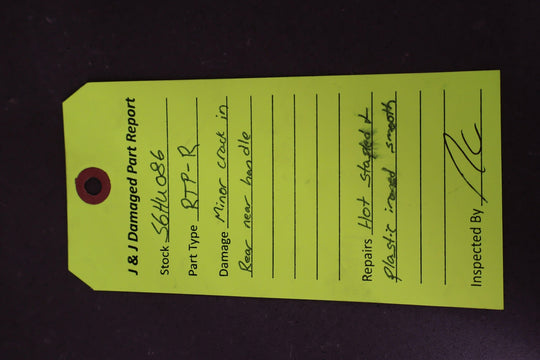 J & J Damaged Part Report
Stock S6HU086
Part Type RTP-R
Damage Minor crack in
Rear near handle
Repairs Hot Stapled &
Plastic ironed smooth
Inspected By